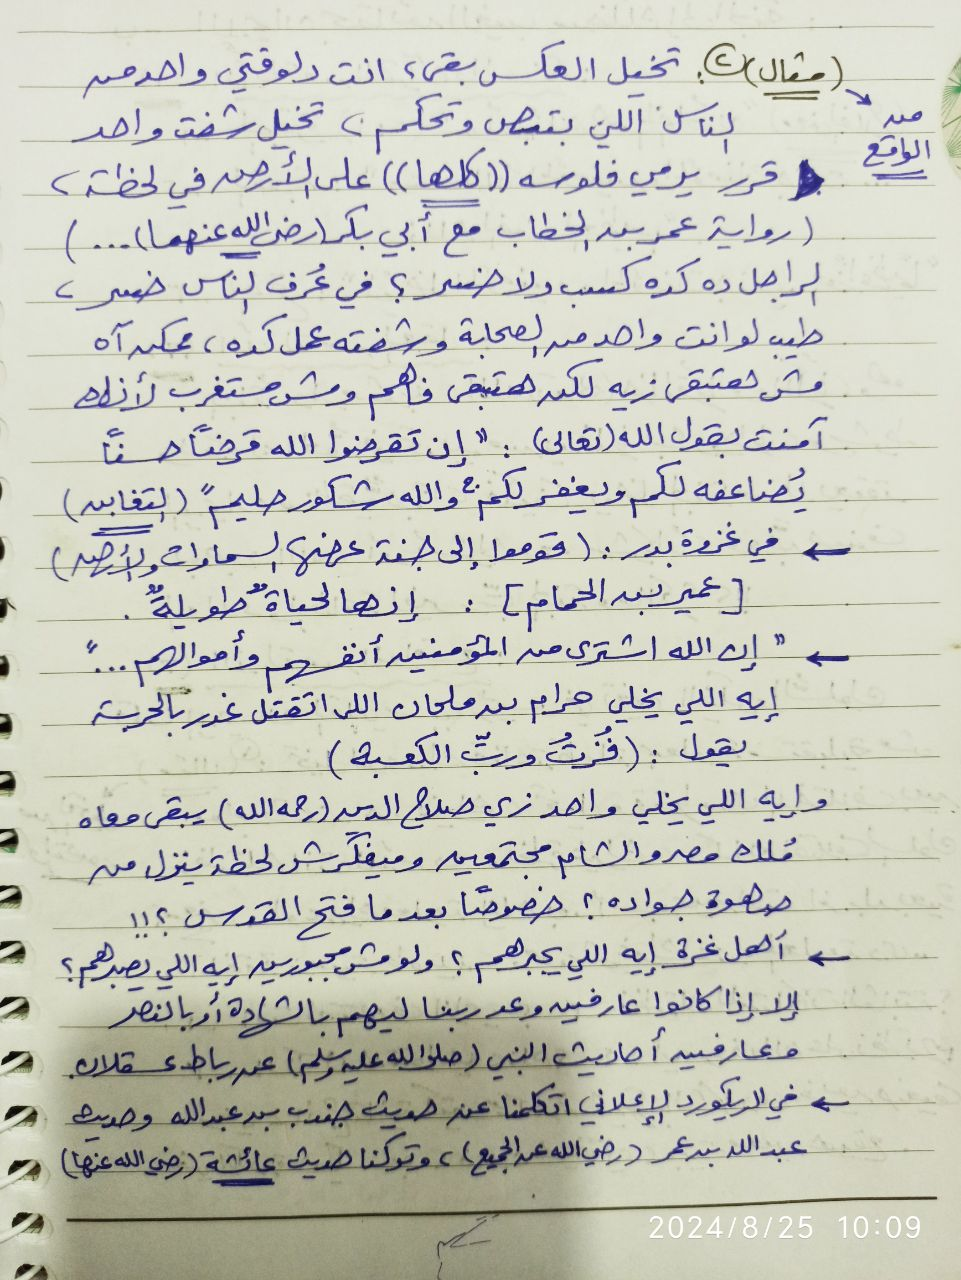 (مثال) ٢: تخيل العكس بقى، انت دلوقتي واحد من
من الواقع
الناس اللي بتبص وتحكم، تخيل شفت واحد
قرر يرمي فلوسه ((كلها)) على الأرض في لحظة،
(رواية عمر بن الخطاب مع أبي بكر (رضي الله عنهما)...)
الراجل ده كده كسب ولا خسر؟ في عُرف الناس خسر،
طيب لو انت واحد من الصحابة وشفته عمل كده، ممكن آه
مش هتبقى زيه لكن هتبقى فاهم ومش مستغرب لأنك
آمنت بقول الله (تعالى): "إن تقرضوا الله قرضًا حسنًا
يُضاعفه لكم ويغفر لكم ج والله شكور حليم" (التغابن)
← في غزوة بدر: (قوموا إلى جنة عرضها السماوات والأرض)
[عمير بن الحمام] : إنها لحياة" طويلةٌ".
← "إن الله اشترى من المؤمنين أنفسهم وأموالهم..."
إيه اللي يخلي حرام بن ملحان اللي اتقتل غدر بالحربة
يقول: (فُزتُ وربِّ الكعبة)
وإيه اللي يخلي واحد زي صلاح الدين (رحمه الله) يبقى معاه
مُلك مصر والشام مجتمعين وميفكرش لحظة ينزل من
صهوة جواده؟ خصوصًا بعد ما فتح القدس؟!!
← أهل غزة إيه اللي يجبرهم؟ ولو مش مجبورين إيه اللي يصبرهم؟
إلا إذا كانوا عارفين وعد ربنا ليهم بالشهادة أو بالنصر
وعارفين أحاديث النبي (صلى الله عليه وسلم) عن رباط عسقلان.
← في الريكورد الإعلاني اتكلمنا عن حديث جندب بن عبدالله وحديث
عبد الله بن عمر (رضي الله عن الجميع)، وتركنا حديث عائشة (رضي الله عنها)
2024/8/25 10:09